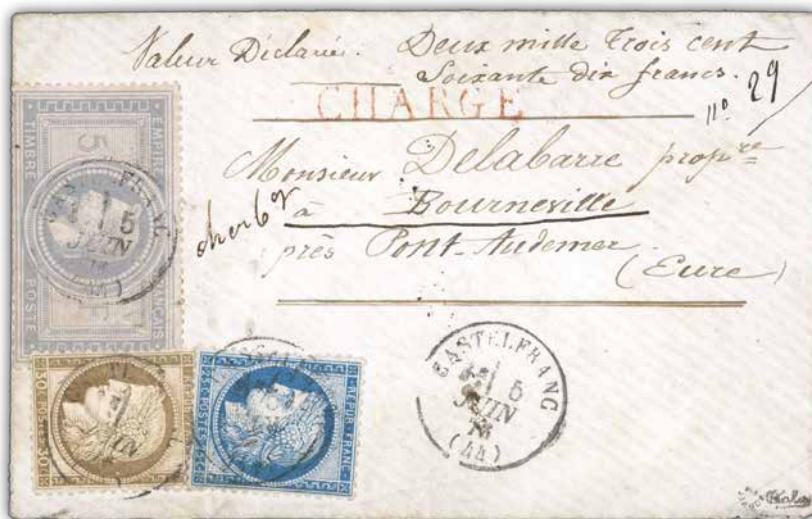 Valeur Déclarée. Deux mille Trois cent
Soixante dix francs.
CHARGÉ
n° 29
Monsieur Delabarre propre
à Bourneville
près Pont-Audemer
(Eure)
EMPIRE FRANÇAIS
TIMBRE POSTE
5
CASTELFRANC
5
JUIN
30 c POSTES 30 c
REPUB. FRANC.
25 c POSTES 25 c
CASTELFRANC
5
JUIN
(44)